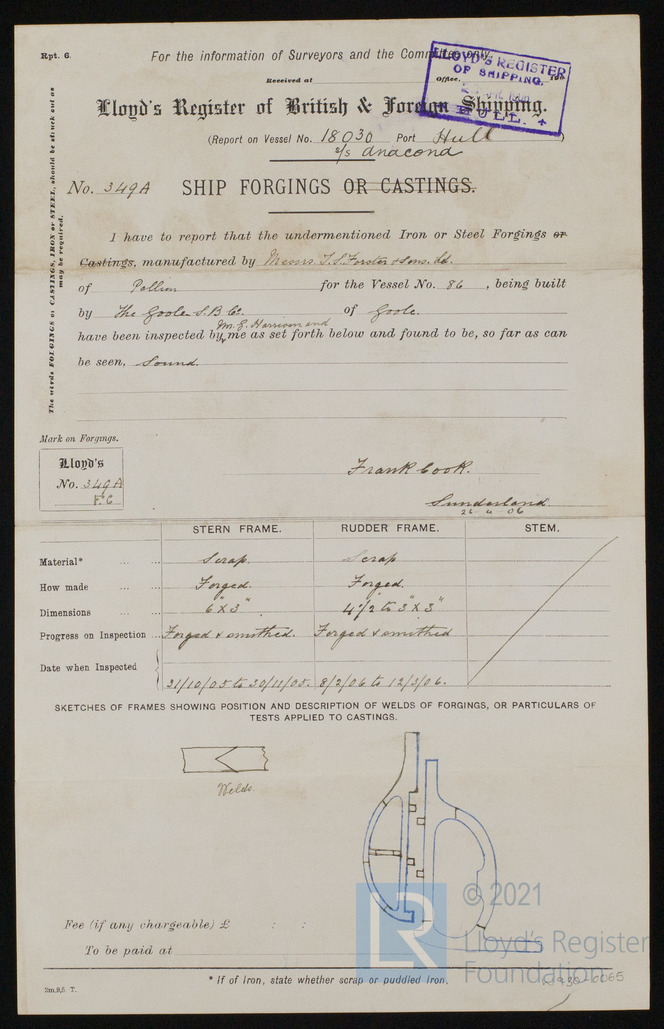 Rpt. 6.
For the information of Surveyors and the Committee only.
Received at
Office,
190
LLOYD'S REGISTER
OF SHIPPING,
HULL.
Lloyd's Register of British & Foreign Shipping.
(Report on Vessel No. 18030 Port Hull )
s/s Anacond
No. 349A SHIP FORGINGS OR CASTINGS.
The words FORGINGS or CASTINGS, IRON or STEEL, should be struck out as
may be required.
I have to report that the undermentioned Iron or Steel Forgings or
Castings, manufactured by Messrs T.S. Forster & Sons. Ld.
of Pallion for the Vessel No. 86 , being built
by The Goole S.B. Co. of Goole.
Mr. G. Harrison and
have been inspected by me as set forth below and found to be, so far as can
be seen, Sound.
Mark on Forgings.
Lloyd's
No. 349A
F.C
Frank Cook.
Sunderland
26 4 06
STERN FRAME. RUDDER FRAME. STEM.
Material* ... ... Scrap. Scrap
How made ... ... Forged. Forged.
Dimensions ... ... 6" x 3" 4 1/2 to 3" x 3"
Progress on Inspection ... Forged & smithed. Forged & smithed
Date when Inspected 31/10/05 to 30/11/05. 8/2/06 to 12/3/06.
SKETCHES OF FRAMES SHOWING POSITION AND DESCRIPTION OF WELDS OF FORGINGS, OR PARTICULARS OF
TESTS APPLIED TO CASTINGS.
Welds.
Fee (if any chargeable) £ : :
To be paid at
* If of Iron, state whether scrap or puddled iron.
2m,9,5. T.
LR
© 2021
Lloyd's Register
Foundation